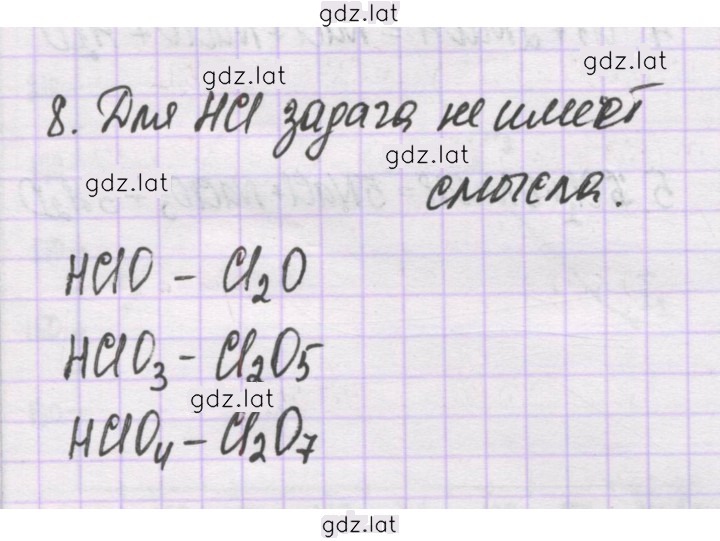 gdz.lat
gdz.lat
gdz.lat
8. Для HCl задача не имеет
gdz.lat
gdz.lat
смысла.
HClO – Cl₂O
HClO₃ – Cl₂O₅
gdz.lat
HClO₄ – Cl₂O₇
gdz.lat